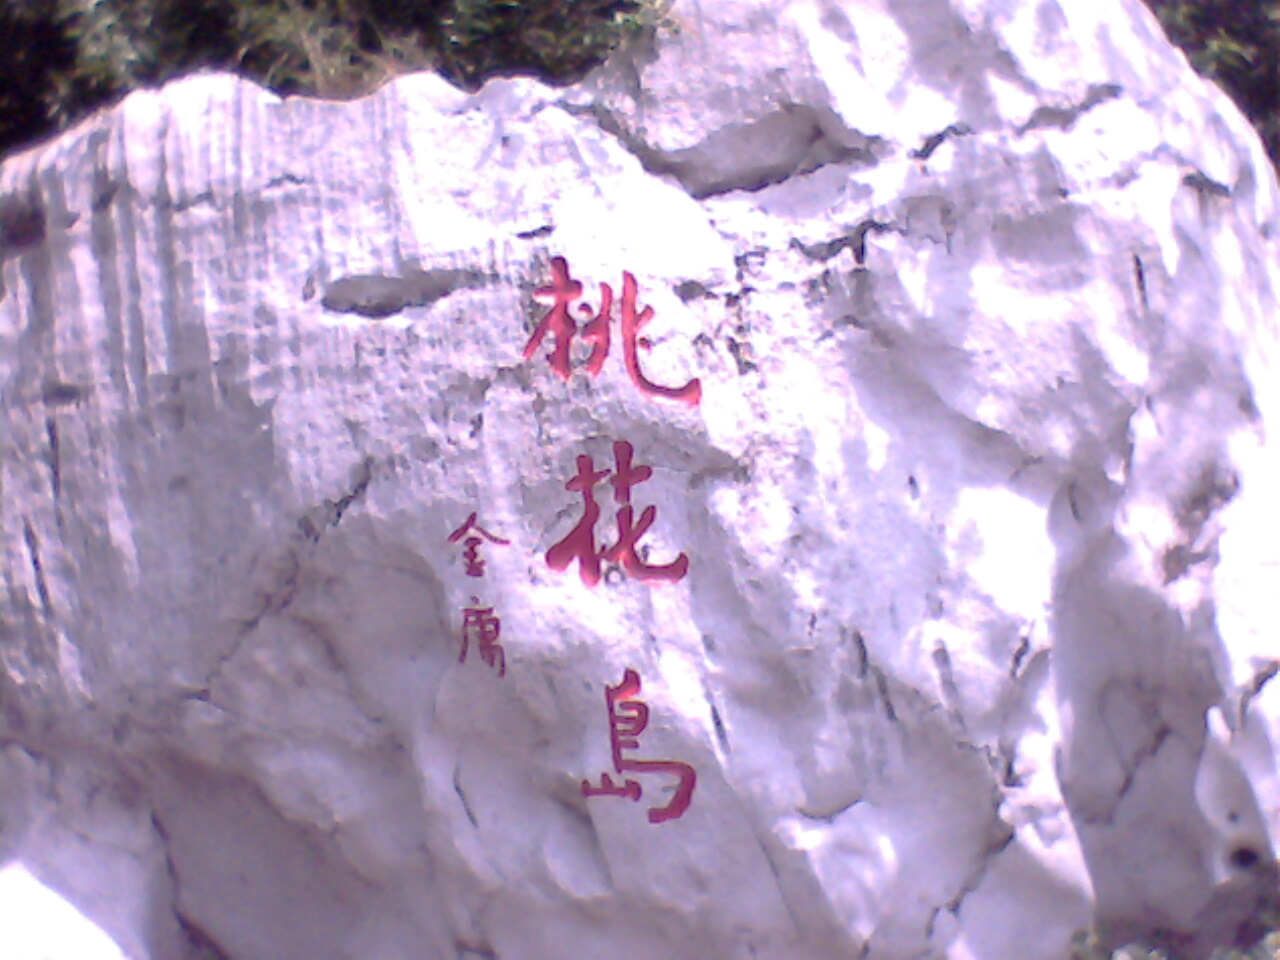 桃花島
金庸